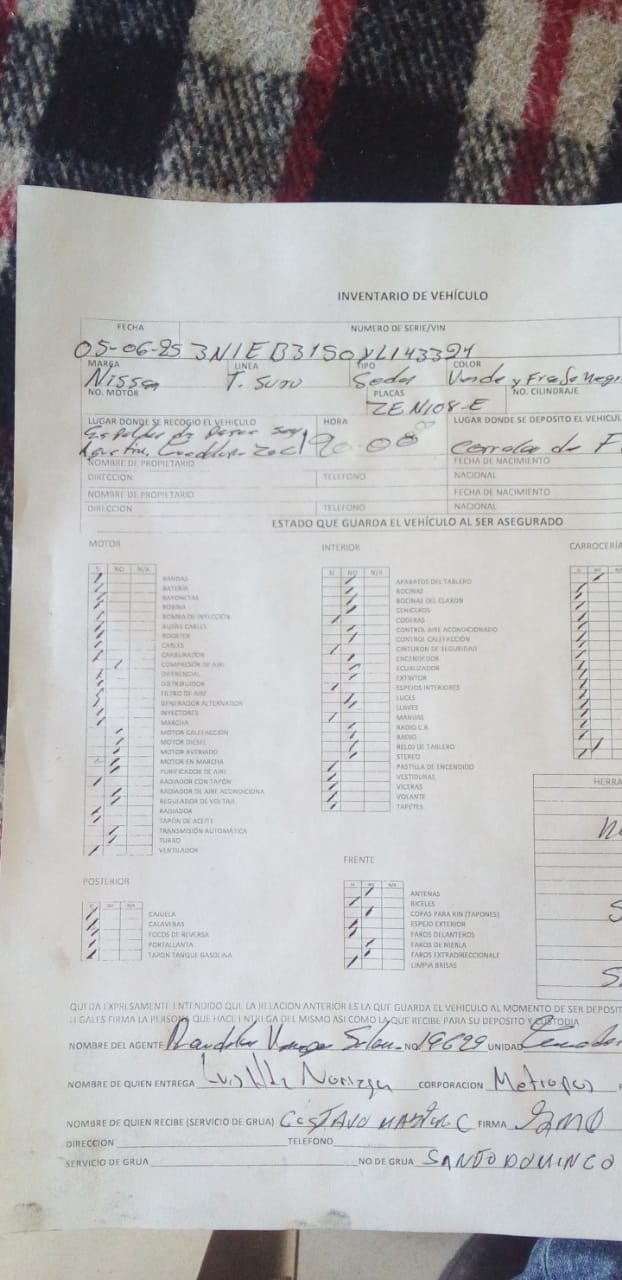 INVENTARIO DE VEHÍCULO
FECHA NUMERO DE SERIE/VIN
05-06-25 3N1EB31S0YL143324
MARCA LINEA TIPO COLOR
Nissan T. Suru Sedan Verde y Franja Negra
NO. MOTOR PLACAS NO. CILINDRAJE
ZEN108-E
LUGAR DONDE SE RECOGIO EL VEHICULO HORA LUGAR DONDE SE DEPOSITO EL VEHICUL
San
Agustin,
NOMBRE DE PROPIETARIO FECHA DE NACIMIENTO
DIRECCION TELEFONO NACIONAL
NOMBRE DE PROPIETARIO FECHA DE NACIMIENTO
DIRECCION TELEFONO NACIONAL
ESTADO QUE GUARDA EL VEHÍCULO AL SER ASEGURADO
MOTOR
SI NO N/A
BANDAS
BATERIA
BAYONETAS
BOBINA
BOMBA DE INYECCIÓN
BUJIAS CABLES
BOOSTER
CABLES
CARBURADOR
COMPRESOR DE AIRE
DIFERENCIAL
DISTRIBUIDOR
FILTRO DE AIRE
GENERADOR ALTERNADOR
INYECTORES
MARCHA
MOTOR CALEFACCIÓN
MOTOR DIESEL
MOTOR AVERIADO
MOTOR EN MARCHA
PURIFICADOR DE AIRE
RADIADOR CON TAPÓN
RADIADOR DE AIRE ACONDICIONA
REGULADOR DE VOLTAJE
RADIADOR
TAPON DE ACEITE
TRANSMISIÓN AUTOMÁTICA
TURBO
VENTILADOR
INTERIOR
SI NO N/A
APARATOS DEL TABLERO
BOCINAS
BOCINAS DEL CLAXON
CENICEROS
CODERAS
CONTROL AIRE ACONDICIONADO
CONTROL CALEFACCIÓN
CINTURON DE SEGURIDAD
ENCENDEDOR
ECUALIZADOR
EXTINTOR
ESPEJOS INTERIORES
LUCES
LLAVES
MANIJAS
RADIO C.B.
RADIO
RELOJ DE TABLERO
STEREO
PASTILLA DE ENCENDIDO
VESTIDURAS
VICERAS
VOLANTE
TAPETES
CARROCERÍA
HERRA
POSTERIOR
SI NO N/A
CAJUELA
CALAVERAS
FOCOS DE REVERSA
PORTALLANTA
TAPON TANQUE GASOLINA
FRENTE
SI NO N/A
ANTENAS
BICELES
COPAS PARA RIN (TAPONES)
ESPEJO EXTERIOR
FAROS DELANTEROS
FAROS DE NIEBLA
FAROS EXTRADIRECCIONALE
LIMPIA BRISAS
QUEDA EXPRESAMENTE ENTENDIDO QUE LA RELACION ANTERIOR ES LA QUE GUARDA EL VEHICULO AL MOMENTO DE SER DEPOSIT
LEGALES FIRMA LA PERSONA QUE HACE ENTREGA DEL MISMO ASI COMO LA QUE RECIBE PARA SU DEPOSITO Y CUSTODIA
NOMBRE DEL AGENTE NO 19629 UNIDAD
NOMBRE DE QUIEN ENTREGA Luis Noriega CORPORACION Metropol
NOMBRE DE QUIEN RECIBE (SERVICIO DE GRUA) GUSTAVO C FIRMA
DIRECCION TELEFONO
SERVICIO DE GRUA NO DE GRUA SANTO DOMINGO